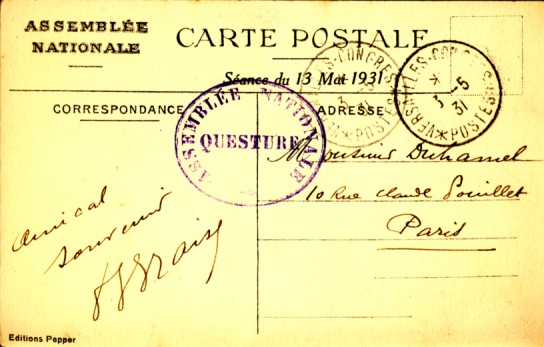 ASSEMBLÉE
NATIONALE
CARTE POSTALE
Séance du 13 Mai 1931
CORRESPONDANCE
ADRESSE
ASSEMBLÉE NATIONALE
QUESTURE
VERSAILLES-CONGRES
POSTES
VERSAILLES-CONGRES
5
31
POSTES
Monsieur Duhamel
10 Rue Claude Pouillet
Paris
Amical
souvenir
Editions Pepper